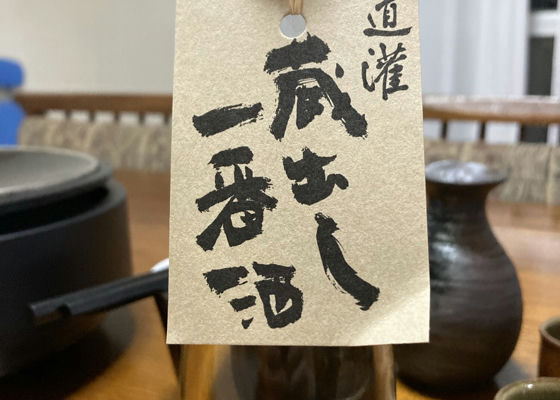 道灌
蔵出し
一番酒